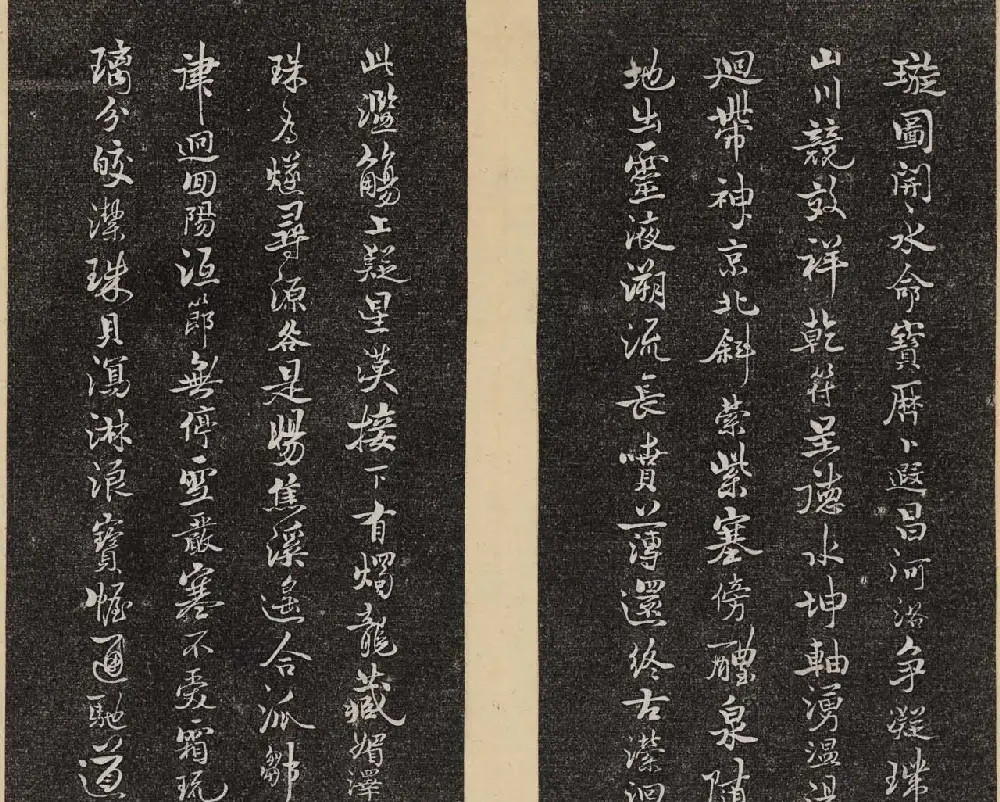 璇圖開水命寶曆卜遐昌河洛爭凝
山川競效祥乾符呈德水坤軸湧溫湯
廻帶神京北斜縈紫塞傍醴泉隨
地出靈液溯流長噴薄還終古瀠洄
此濫觴上疑星漢接下有燭龍藏媚澤
珠為燧尋源谷是暘焦溪遙合派鄒
律迥回陽沍節無停雪嚴寒不受霜琉
璃分皎潔珠貝瀉淋浪寶幄通馳道